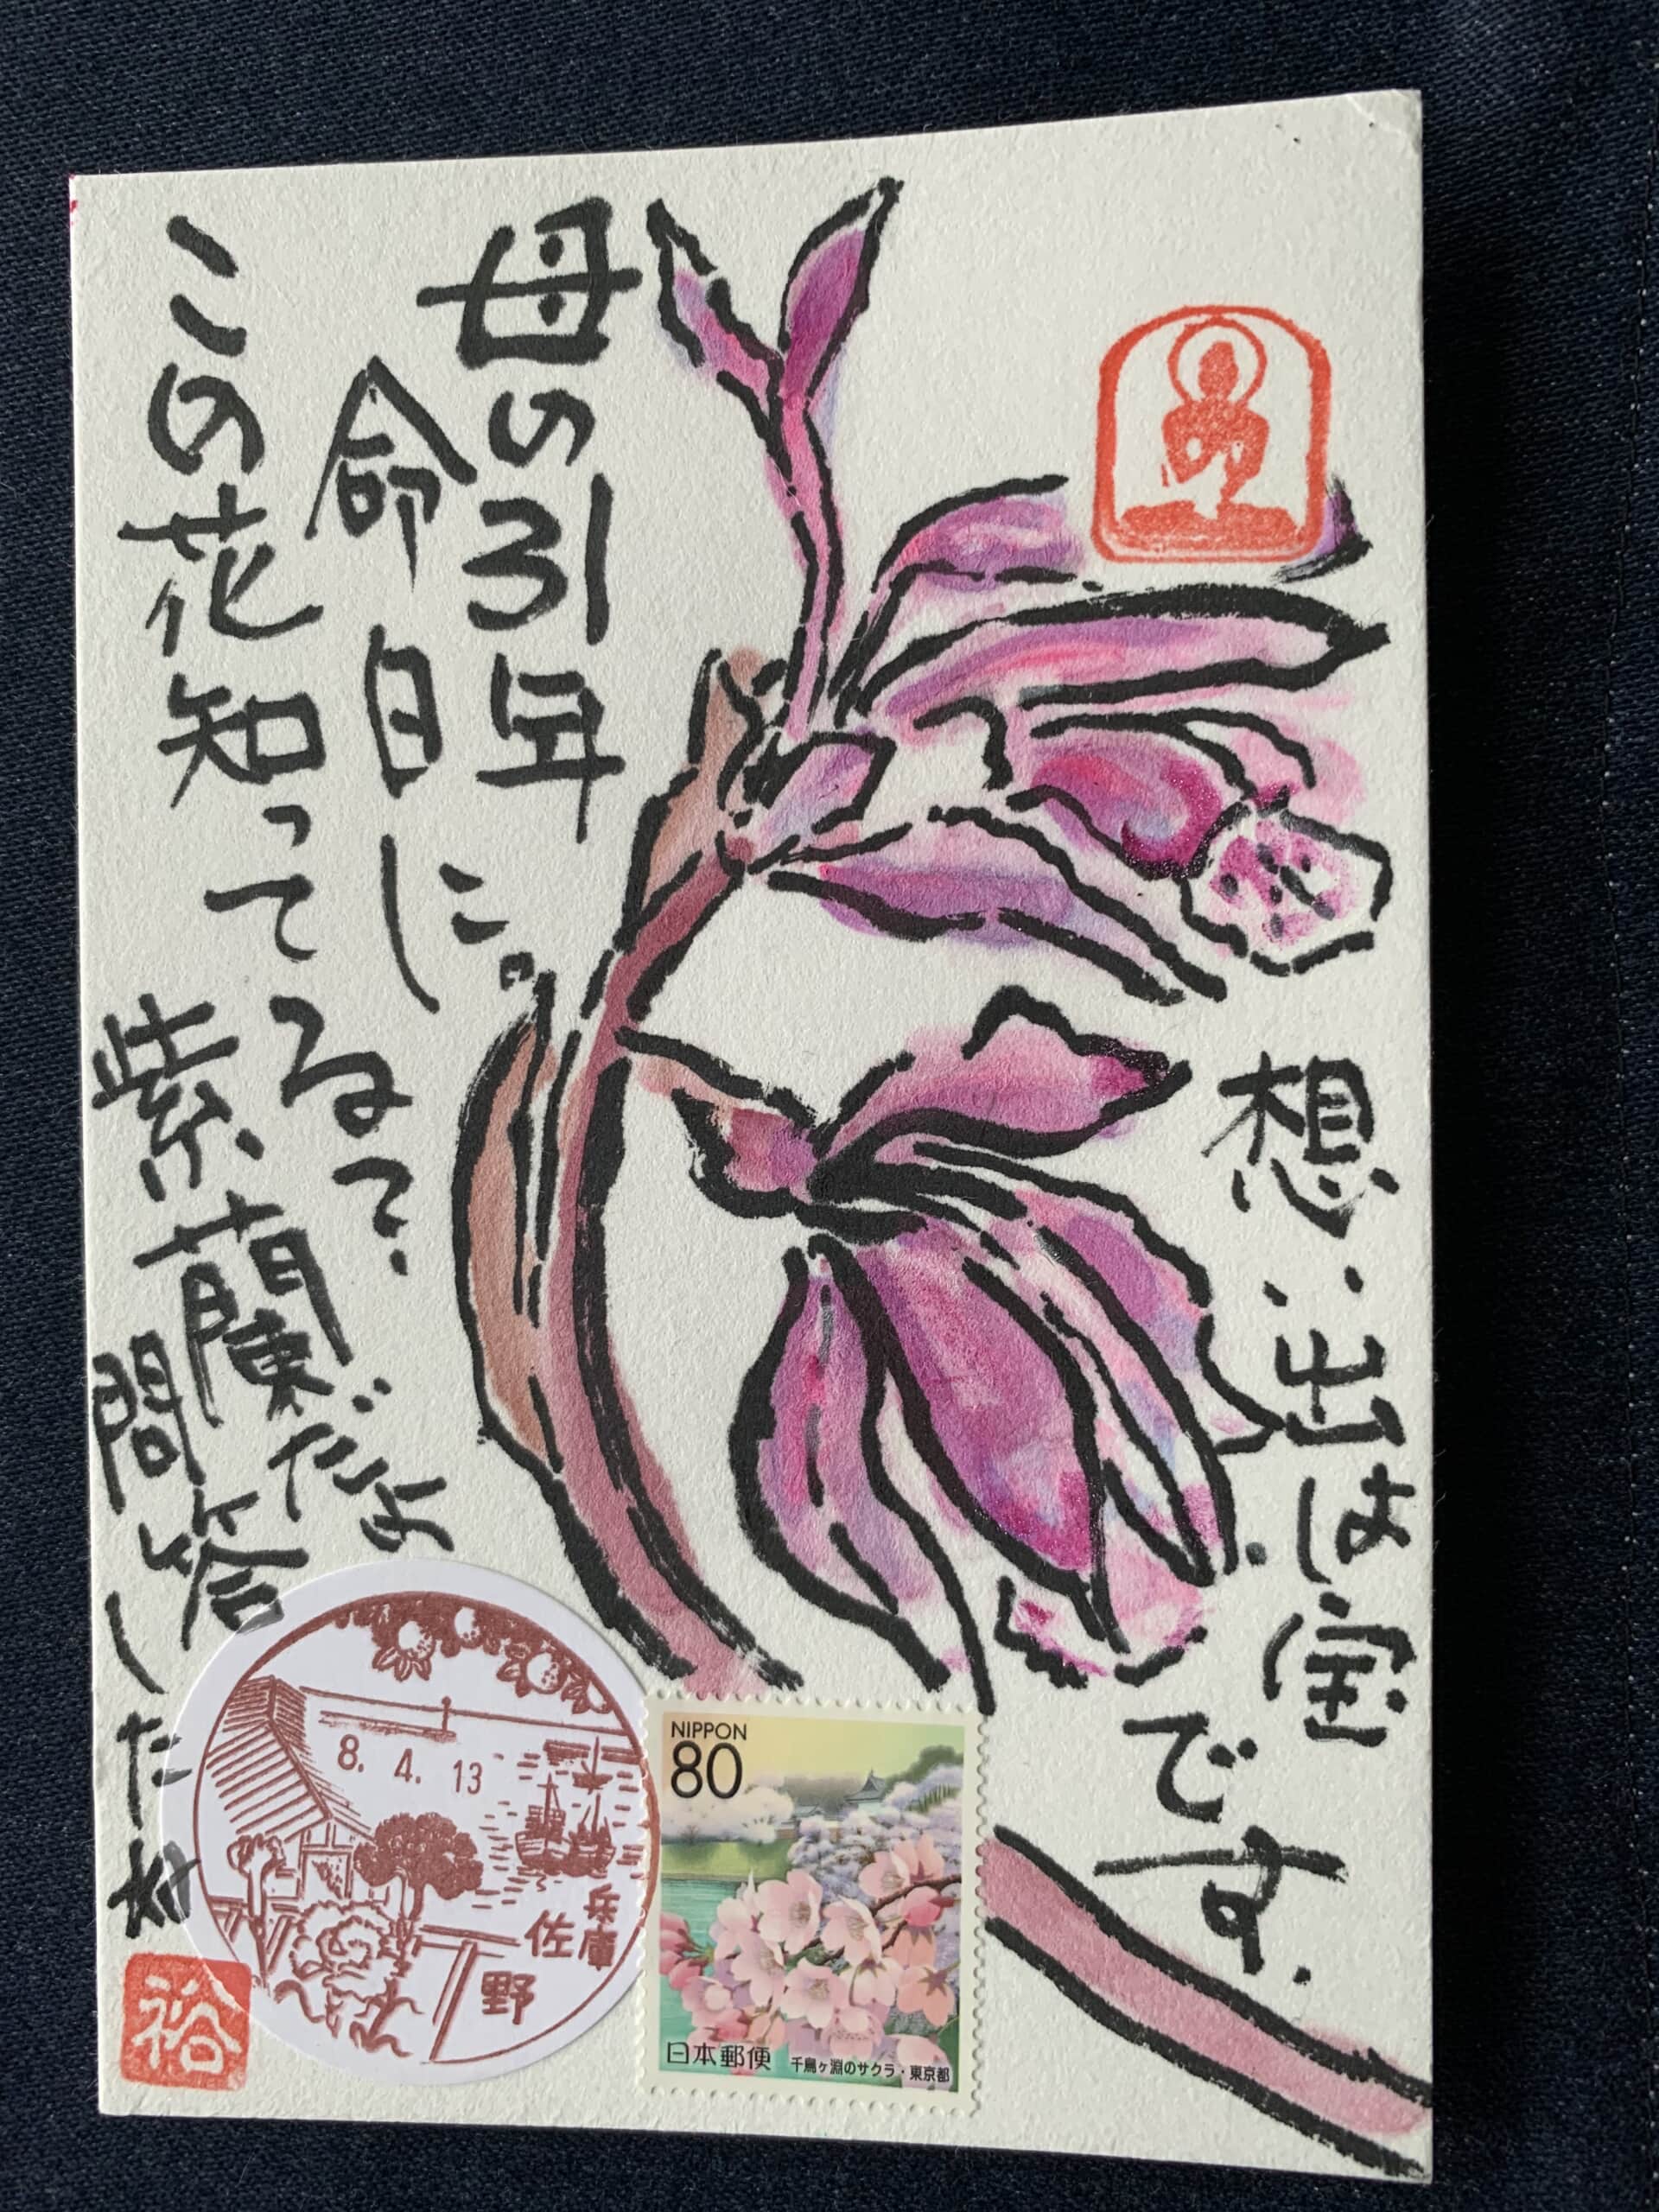 想い出は宝です.
母の31年
命日に。
この花知ってるて.
紫蘭だよ
問答したね
裕
8. 4. 13
兵庫
佐野
NIPPON
80
日本郵便
千鳥ヶ淵のサクラ・東京都